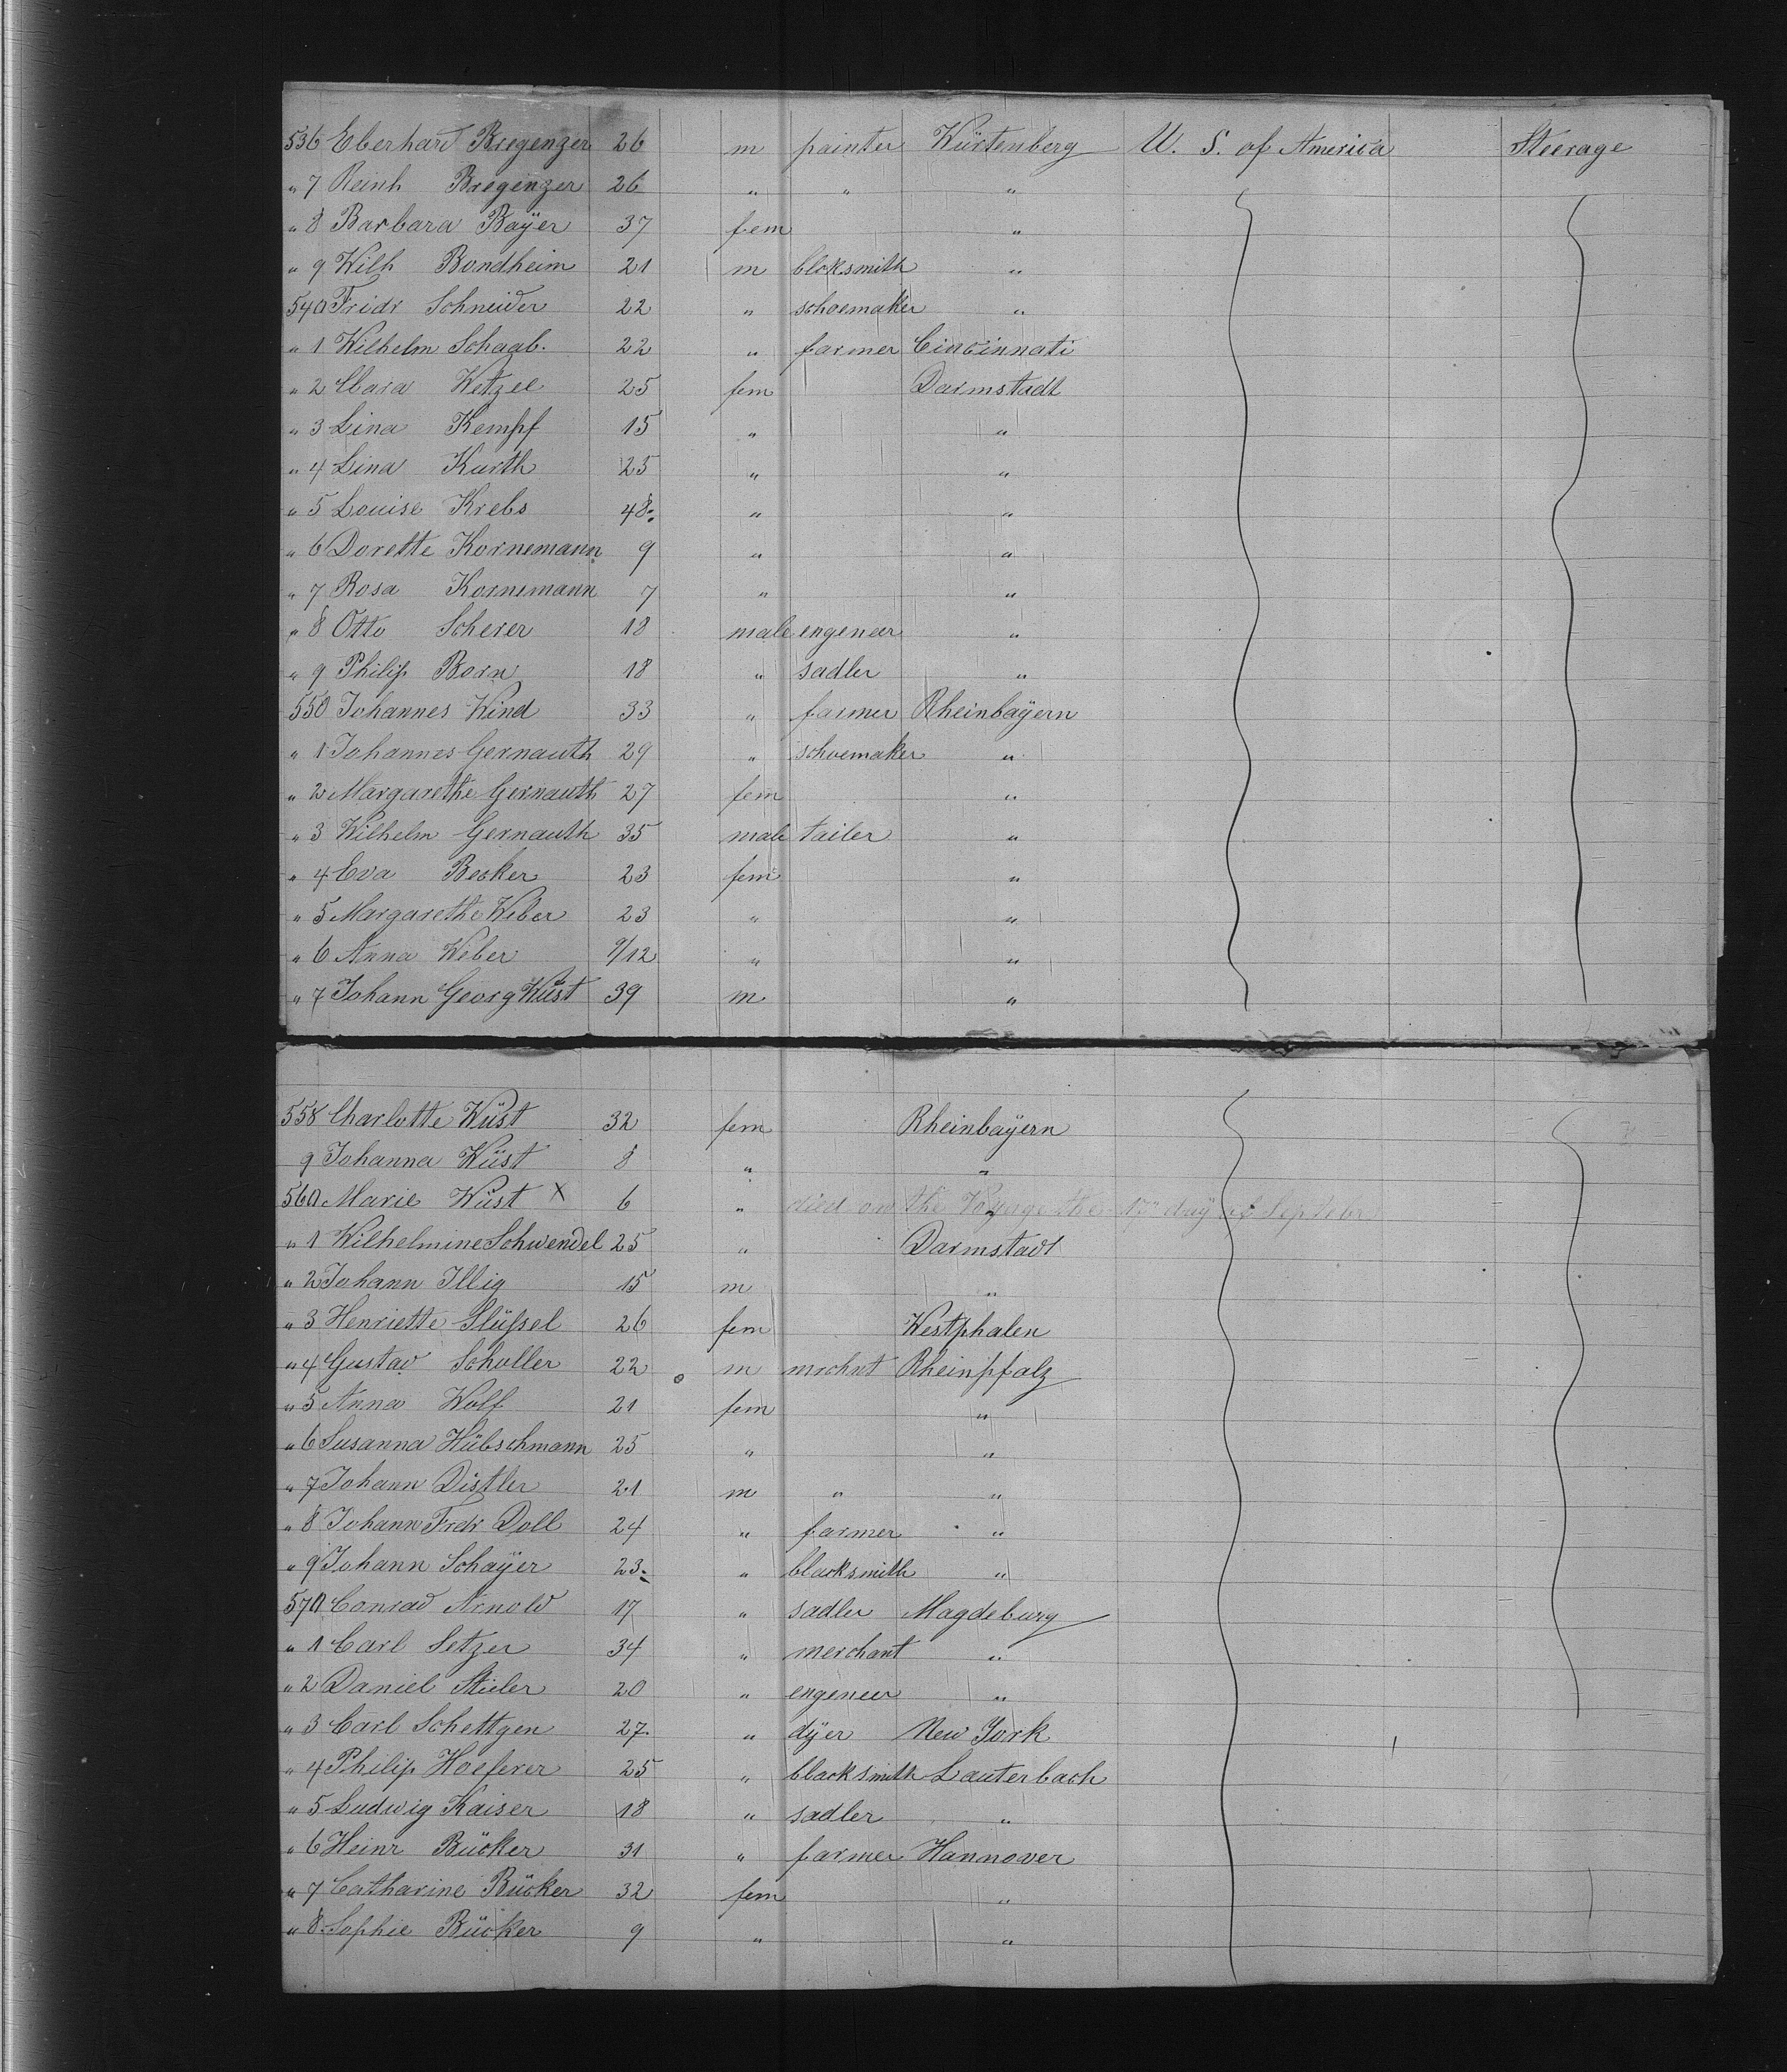 536 Eberhard Bregenzer 26 m painter Würtenberg U. S. of America Steerage
" 7 Reinh Bregenzer 26 " " "
" 8 Barbara Bayer 37 fem "
" 9 Wilh Bondheim 21 m blcksmith "
540 Fridr Schneider 22 " schoemaker "
" 1 Wilhelm Schaab. 22 " farmer Cincinnati
" 2 Clara Wetzel 25 fem Darmstadt
" 3 Lina Kempf 15 " "
" 4 Lina Kurth 25 " "
" 5 Louise Krebs 48 " "
" 6 Dorette Kornemann 9 " "
" 7 Rosa Kornemann 7 " "
" 8 Otto Scherer 18 male engeneer "
" 9 Philip Born 18 " sadler "
550 Johannes Wind 33 " farmer Rheinbayern
" 1 Johannes Gernauth 29 " schoemaker "
" 2 Margarethe Gernauth 27 fem "
" 3 Wilhelm Gernauth 35 male tailer "
" 4 Eva Becker 23 fem "
" 5 Margarethe Weber 23 " "
" 6 Anna Weber 9/12 " "
" 7 Johann Georg Wüst 39 m "
558 Charlotte Wüst 32 fem Rheinbayern
9 Johanna Wüst 8 " "
560 Marie Wüst X 6 " died on the Voyage the 17" day of Septebr
" 1 Wilhelmine Schwendel 25 " Darmstadt
" 2 Johann Illig 15 m "
" 3 Henriette Slüssel 26 fem Westphalen
" 4 Gustav Scholler 22 m mrchnt Rheinpfalz
" 5 Anna Wolf 21 fem "
" 6 Susanna Hübschmann 25 " "
" 7 Johann Distler 21 m " "
" 8 Johann Fredr Doll 24 " farmer "
" 9 Johann Schayer 23 " blacksmith "
570 Conrad Arnold 17 " sadler Magdeburg
" 1 Carl Setzer 34 " merchant "
" 2 Daniel Stieler 20 " engeneer "
" 3 Carl Schettgen 27 " dÿer New York
" 4 Philip Hoeferer 25 " blacksmith Lauterbach
" 5 Ludwig Kaiser 18 " sadler "
" 6 Heinr Bücker 31 " farmer Hannover
" 7 Catharine Bücker 32 fem "
" 8 Sophie Bücker 9 " "